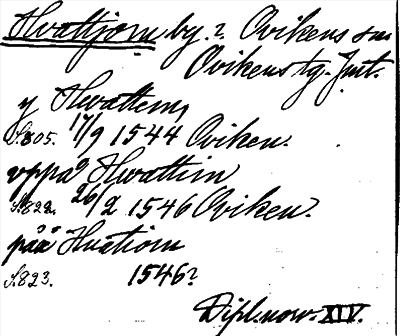 Hvattjom by. i Ovikens sn
Ovikens tg. Jmt.
y Hwattem,
S.805. 17/9 1544 Oviken.
vppå Hwattim
S.822. 26/2 1546 Oviken.
påå Huatiom
S.823. 1546?
Dipl. now. XIV.